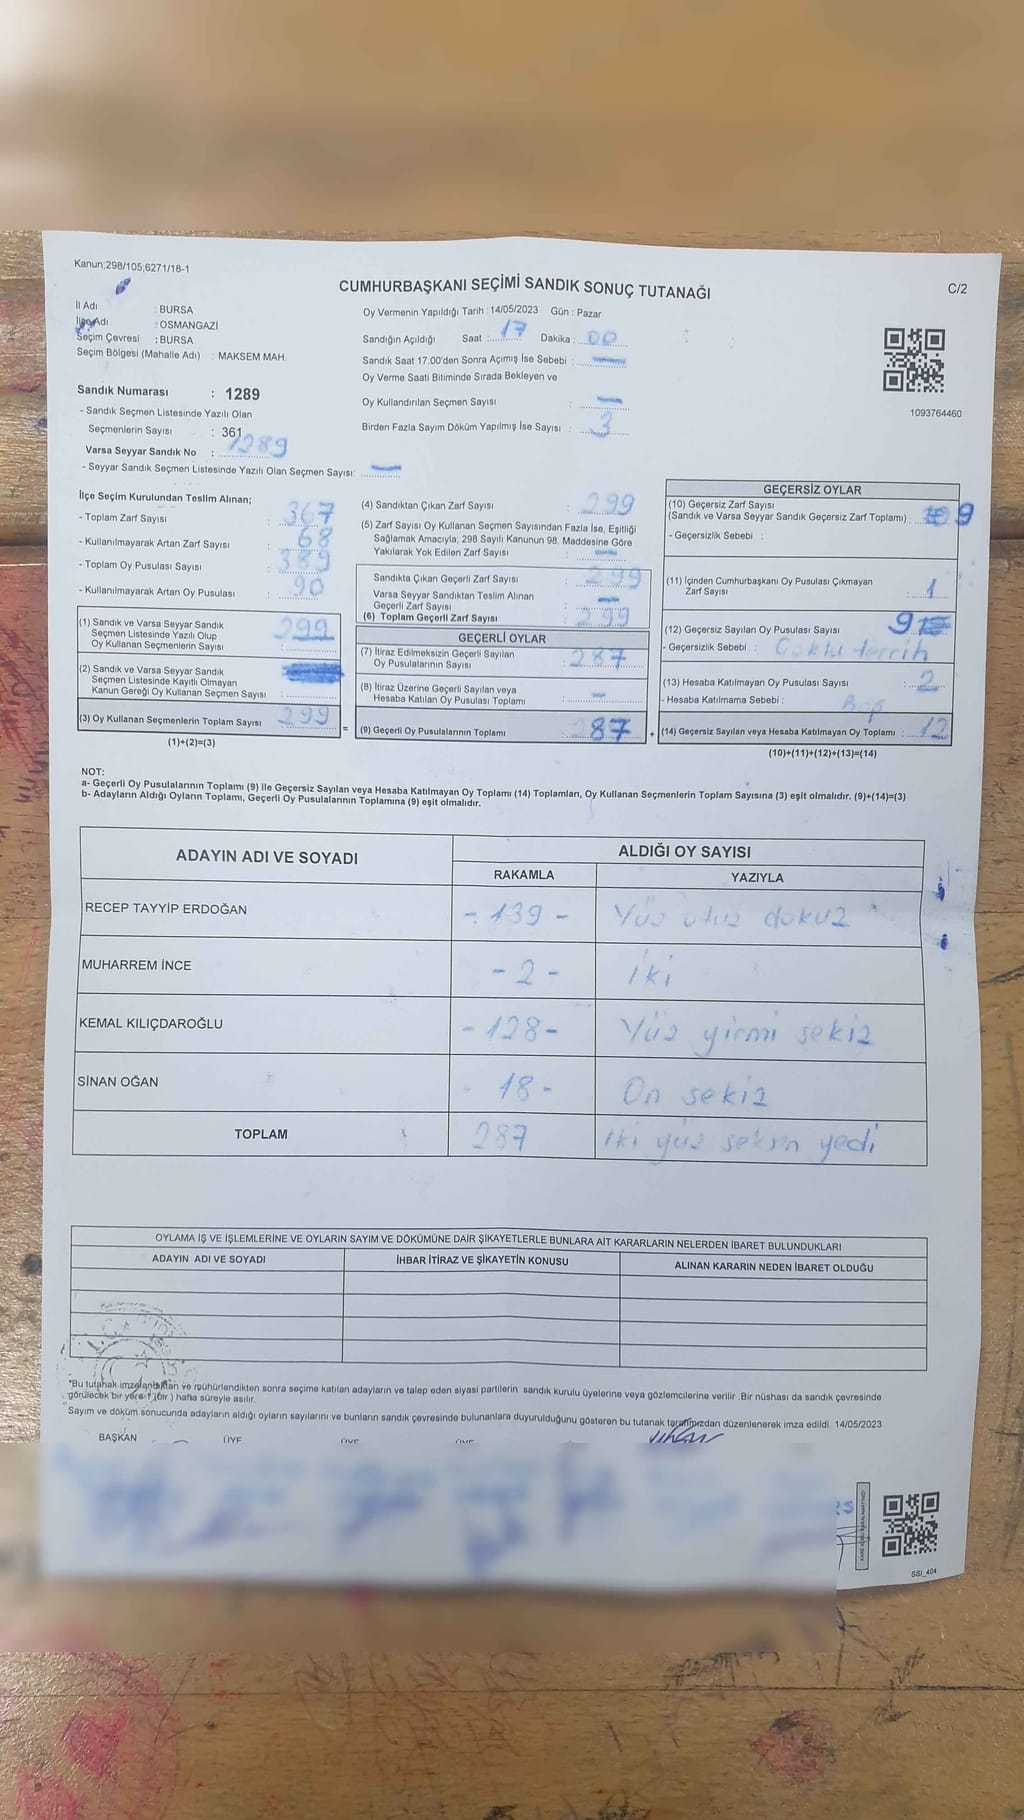 Kanun;298/105;6271/18-1
CUMHURBAŞKANI SEÇİMİ SANDIK SONUÇ TUTANAĞI
C/2
İl Adı : BURSA
İlçe Adı : OSMANGAZİ
Seçim Çevresi : BURSA
Seçim Bölgesi (Mahalle Adı) : MAKSEM MAH.
Sandık Numarası : 1289
- Sandık Seçmen Listesinde Yazılı Olan
Seçmenlerin Sayısı : 361
Varsa Seyyar Sandık No : 1289
- Seyyar Sandık Seçmen Listesinde Yazılı Olan Seçmen Sayısı: —
Oy Vermenin Yapıldığı Tarih : 14/05/2023 Gün : Pazar
Sandığın Açıldığı Saat : 17 Dakika : 00
Sandık Saat 17:00'den Sonra Açımış İse Sebebi : —
Oy Verme Saati Bitiminde Sırada Bekleyen ve
Oy Kullandırılan Seçmen Sayısı : —
Birden Fazla Sayım Döküm Yapılmış İse Sayısı : 3
1093764460
İlçe Seçim Kurulundan Teslim Alınan;
- Toplam Zarf Sayısı : 367
- Kullanılmayarak Artan Zarf Sayısı : 68
- Toplam Oy Pusulası Sayısı : 389
- Kullanılmayarak Artan Oy Pusulası : 90
(1) Sandık ve Varsa Seyyar Sandık
Seçmen Listesinde Yazılı Olup
Oy Kullanan Seçmenlerin Sayısı : 299
(2) Sandık ve Varsa Seyyar Sandık
Seçmen Listesinde Kayıtlı Olmayan
Kanun Gereği Oy Kullanan Seçmen Sayısı :
(3) Oy Kullanan Seçmenlerin Toplam Sayısı : 299
(1)+(2)=(3)
(4) Sandıktan Çıkan Zarf Sayısı : 299
(5) Zarf Sayısı Oy Kullanan Seçmen Sayısından Fazla İse, Eşitliği
Sağlamak Amacıyla; 298 Sayılı Kanunun 98. Maddesine Göre
Yakılarak Yok Edilen Zarf Sayısı : —
Sandıkta Çıkan Geçerli Zarf Sayısı : 299
Varsa Seyyar Sandıktan Teslim Alınan
Geçerli Zarf Sayısı : —
(6) Toplam Geçerli Zarf Sayısı : 299
GEÇERLİ OYLAR
(7) İtiraz Edilmeksizin Geçerli Sayılan
Oy Pusulalarının Sayısı : 287
(8) İtiraz Üzerine Geçerli Sayılan veya
Hesaba Katılan Oy Pusulası Toplamı : —
=
(9) Geçerli Oy Pusulalarının Toplamı : 287
+
GEÇERSİZ OYLAR
(10) Geçersiz Zarf Sayısı
(Sandık ve Varsa Seyyar Sandık Geçersiz Zarf Toplamı) :
- Geçersizlik Sebebi :
(11) İçinden Cumhurbaşkanı Oy Pusulası Çıkmayan
Zarf Sayısı : 1
(12) Geçersiz Sayılan Oy Pusulası Sayısı : 9
- Geçersizlik Sebebi : Çoklu tercih
(13) Hesaba Katılmayan Oy Pusulası Sayısı : 2
- Hesaba Katılmama Sebebi : Boş
(14) Geçersiz Sayılan veya Hesaba Katılmayan Oy Toplamı : 12
(10)+(11)+(12)+(13)=(14)
NOT:
a- Geçerli Oy Pusulalarının Toplamı (9) ile Geçersiz Sayılan veya Hesaba Katılmayan Oy Toplamı (14) Toplamları, Oy Kullanan Seçmenlerin Toplam Sayısına (3) eşit olmalıdır. (9)+(14)=(3)
b- Adayların Aldığı Oyların Toplamı, Geçerli Oy Pusulalarının Toplamına (9) eşit olmalıdır.
ADAYIN ADI VE SOYADI ALDIĞI OY SAYISI
RAKAMLA YAZIYLA
RECEP TAYYİP ERDOĞAN - 139 - Yüz otuz dokuz
MUHARREM İNCE - 2 - İki
KEMAL KILIÇDAROĞLU - 128 - Yüz yirmi sekiz
SİNAN OĞAN - 18 - On sekiz
TOPLAM 287 iki yüz seksen yedi
OYLAMA İŞ VE İŞLEMLERİNE VE OYLARIN SAYIM VE DÖKÜMÜNE DAİR ŞİKAYETLERLE BUNLARA AİT KARARLARIN NELERDEN İBARET BULUNDUKLARI
ADAYIN ADI VE SOYADI İHBAR İTİRAZ VE ŞİKAYETİN KONUSU ALINAN KARARIN NEDEN İBARET OLDUĞU
"Bu tutanak imzalandıktan ve mühürlendikten sonra seçime katılan adayların ve talep eden siyasi partilerin sandık kurulu üyelerine veya gözlemcilerine verilir .Bir nüshası da sandık çevresinde
görülecek bir yere 1 (bir ) hafta süreyle asılır.
Sayım ve döküm sonucunda adayların aldığı oyların sayılarını ve bunların sandık çevresinde bulunanlara duyurulduğunu gösteren bu tutanak tarafımızdan düzenlenerek imza edildi. 14/05/2023
BAŞKAN ÜYE ÜYE ÜYE
SSİ_404